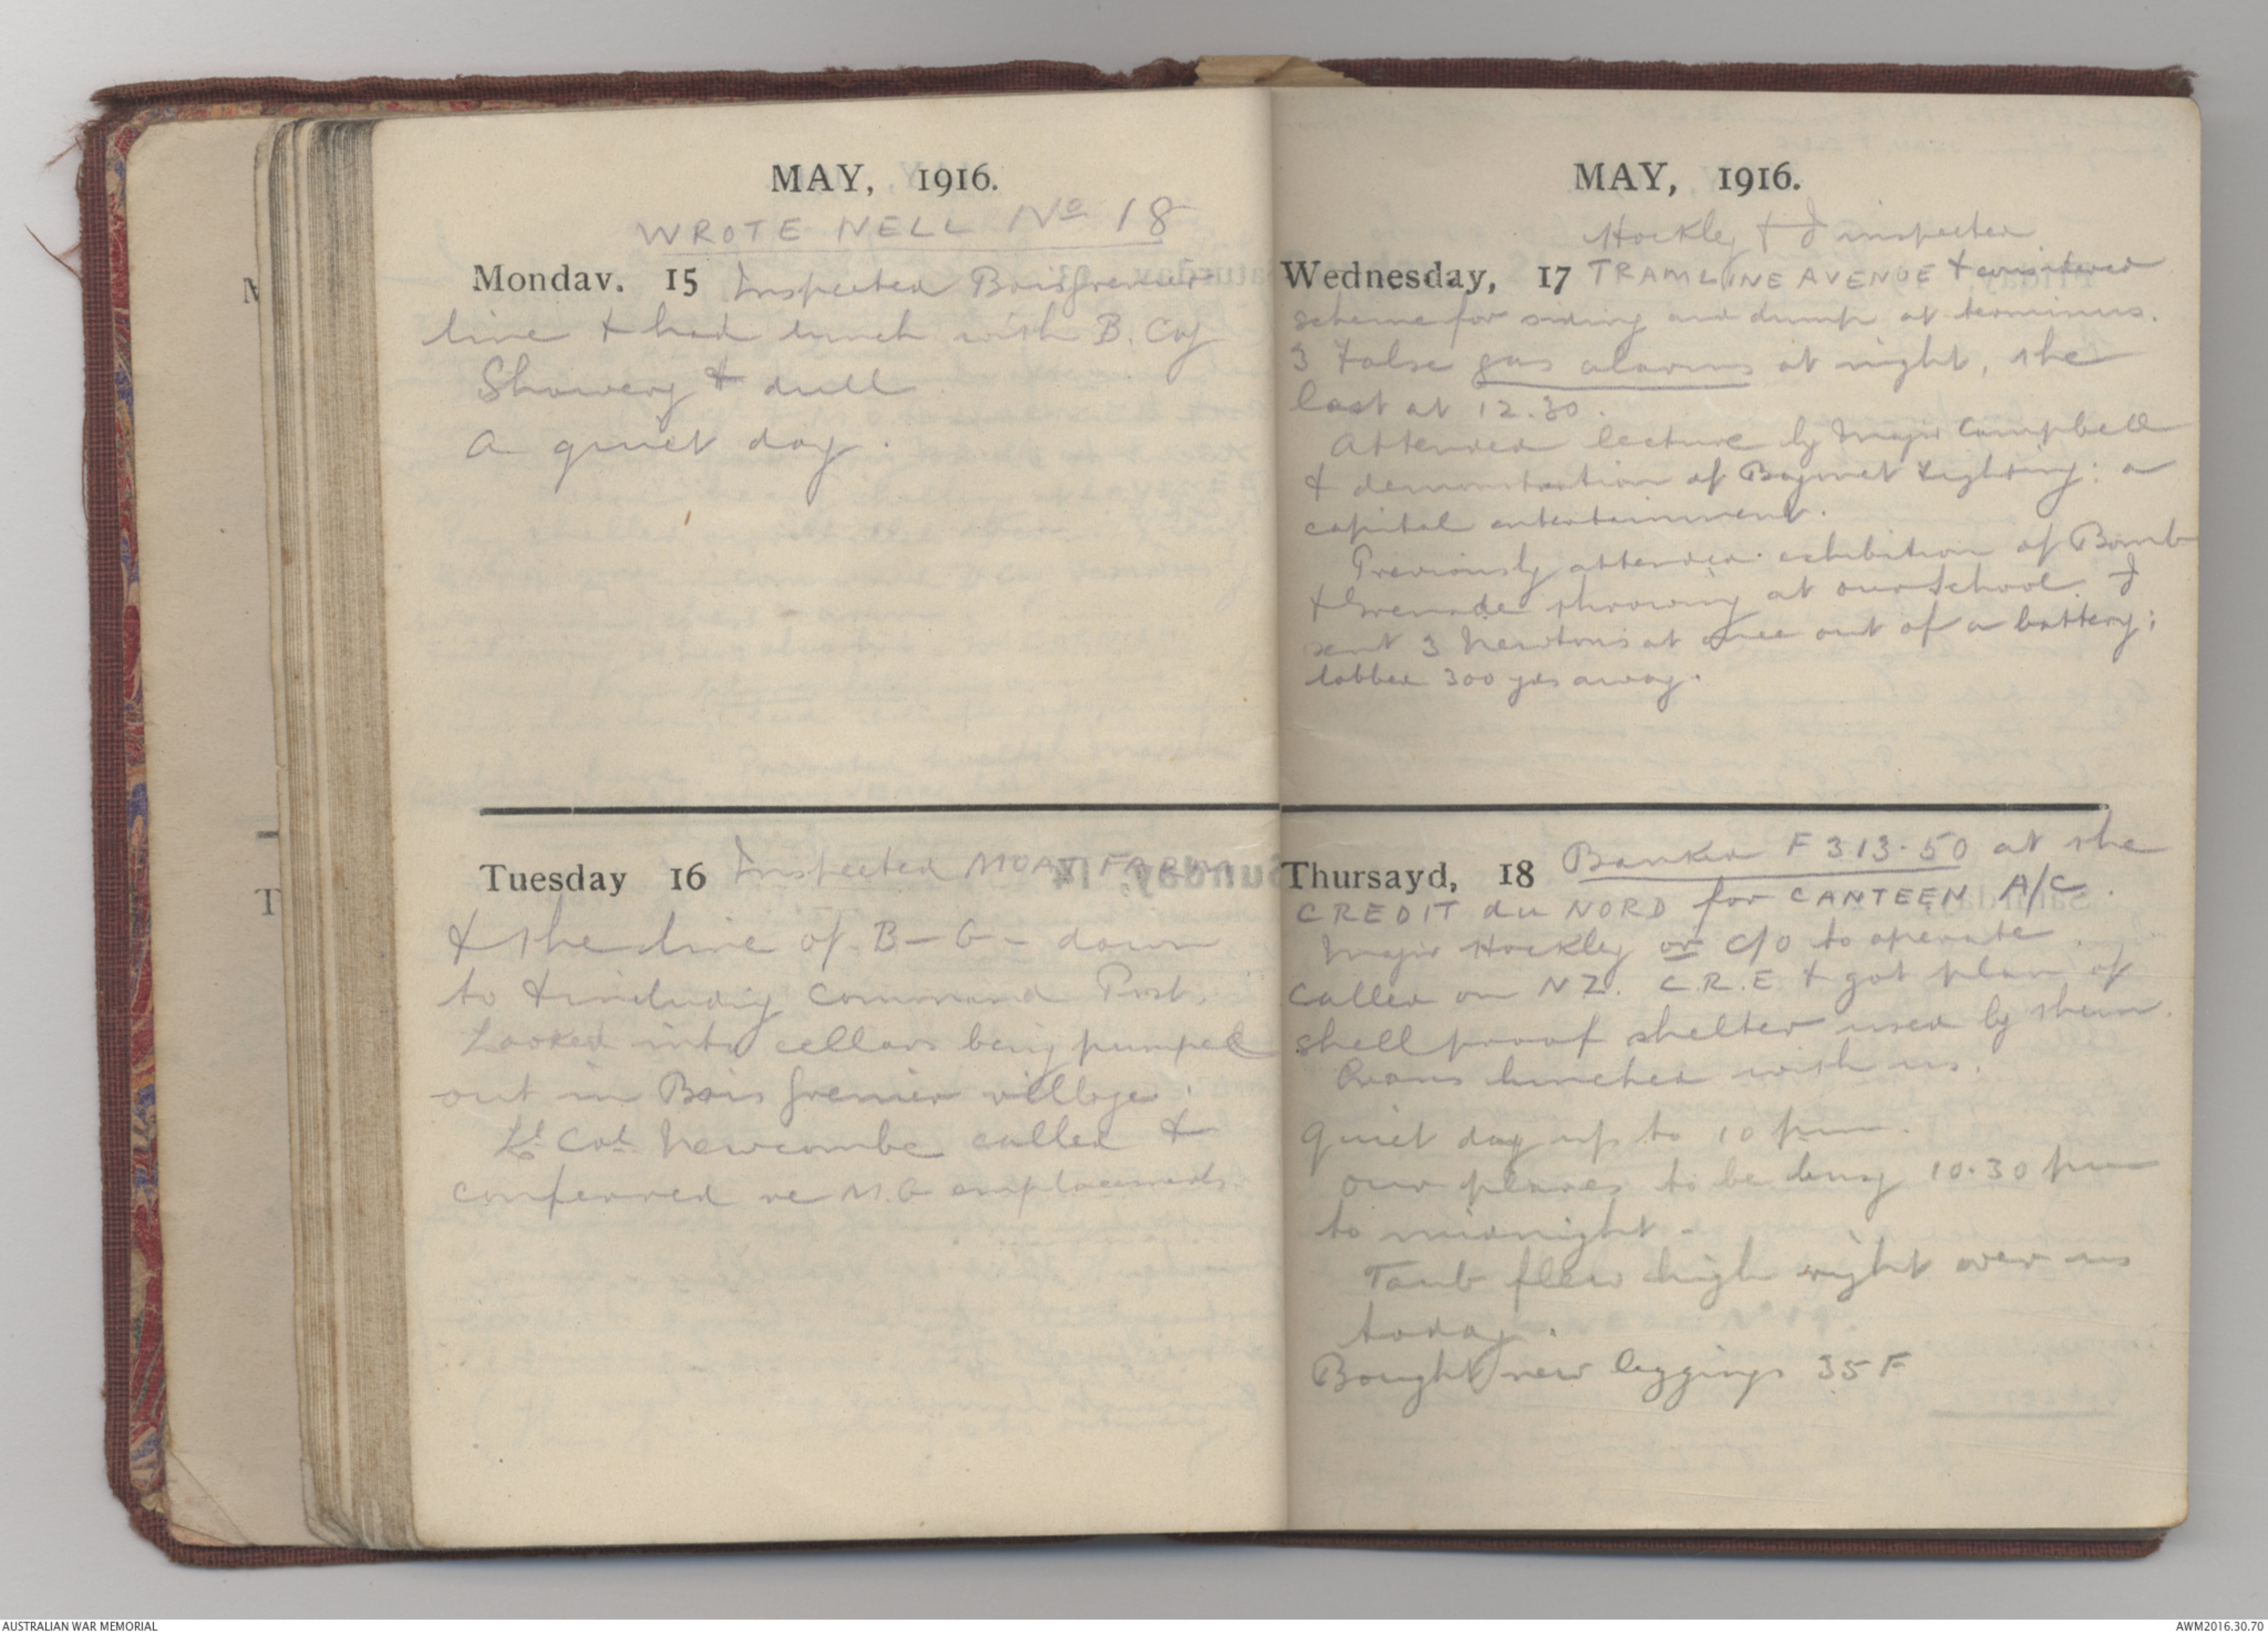 MAY, 1916.
WROTE NELL No 18
Monday. 15 Inspected Boisgrenier
line & had lunch with B. Coy
Showery & dull
A quiet day.
Tuesday 16 Inspected MOAT FARM
& the line of B-G- down
to & including Command Post.
Looked into cellars being pumped
out in Bois Grenier village.
Lt Col Newcombe called &
conferred re M.G emplacements.
MAY, 1916.
Hockley & I inspected
Wednesday, 17 TRAMLINE AVENUE & considered
scheme for siding and dump at terminus.
3 False gas alarms at night, the
last at 12.30.
Attended lecture by Major Campbell
& demonstration of Bayonet Fighting: a
capital entertainment.
Previously attended exhibition of Bomb
& Grenade throwing at our School. I
sent 3 Newtons at once out of a battery;
lobbed 300 yds away.
Thursayd, 18 Banked F 313.50 at the
CREDIT du NORD for CANTEEN A/C.
Major Hockley or C/O to operate.
Called on NZ. C.R.E & got plan of
shell proof shelter used by them.
Evans lunched with us.
Quiet day up to 10 pm.
Our planes to be busy 10.30 pm
to midnight -
Taub flew high right over us
today.
Bought new leggings 35 F
AUSTRALIAN WAR MEMORIAL
AWM2016.30.70